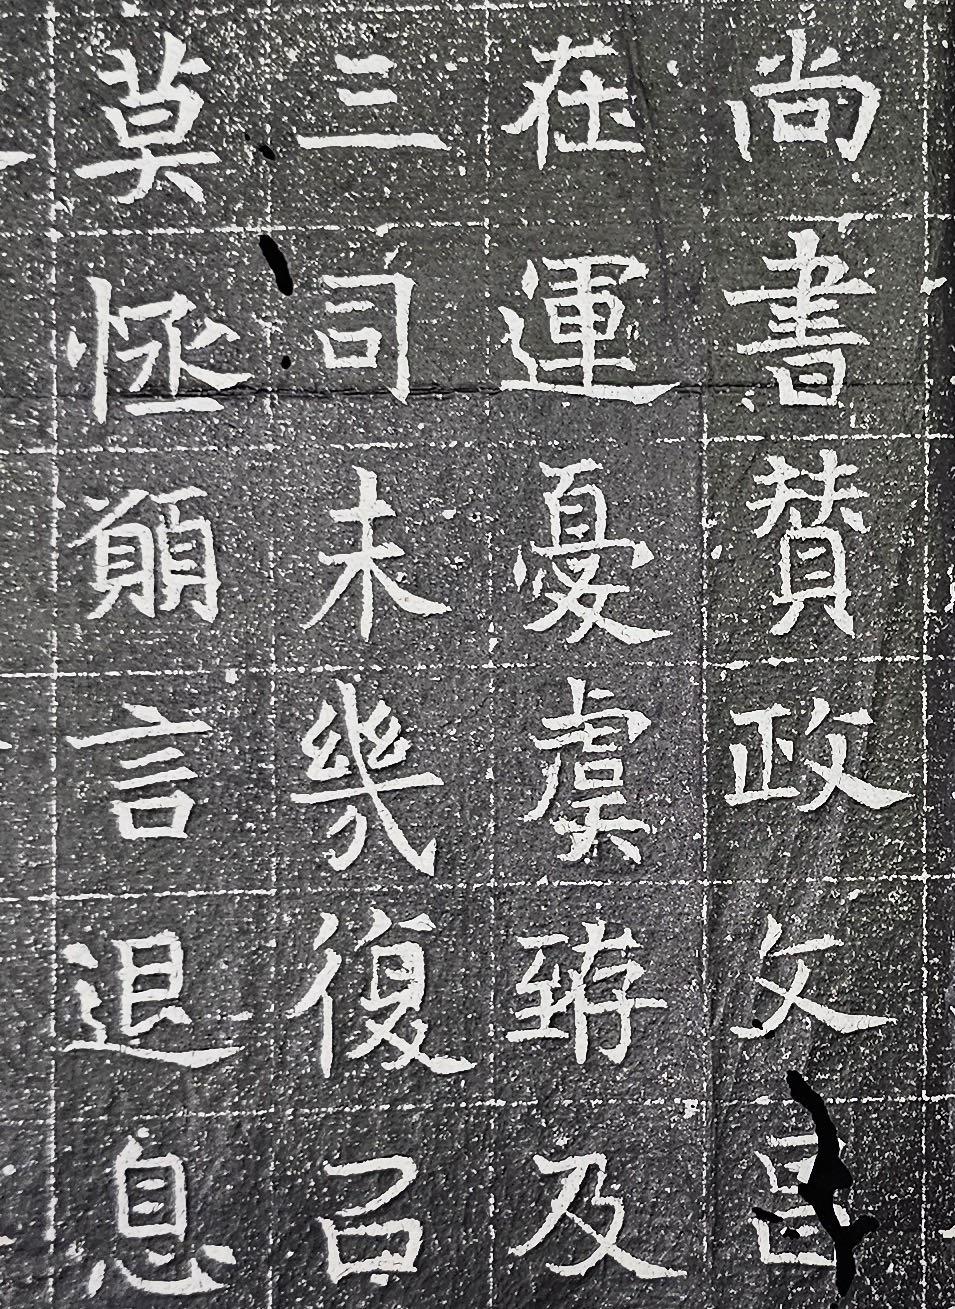 尚書賛政文昌
在運憂虞臶及
三司未幾復召
莫願言退息